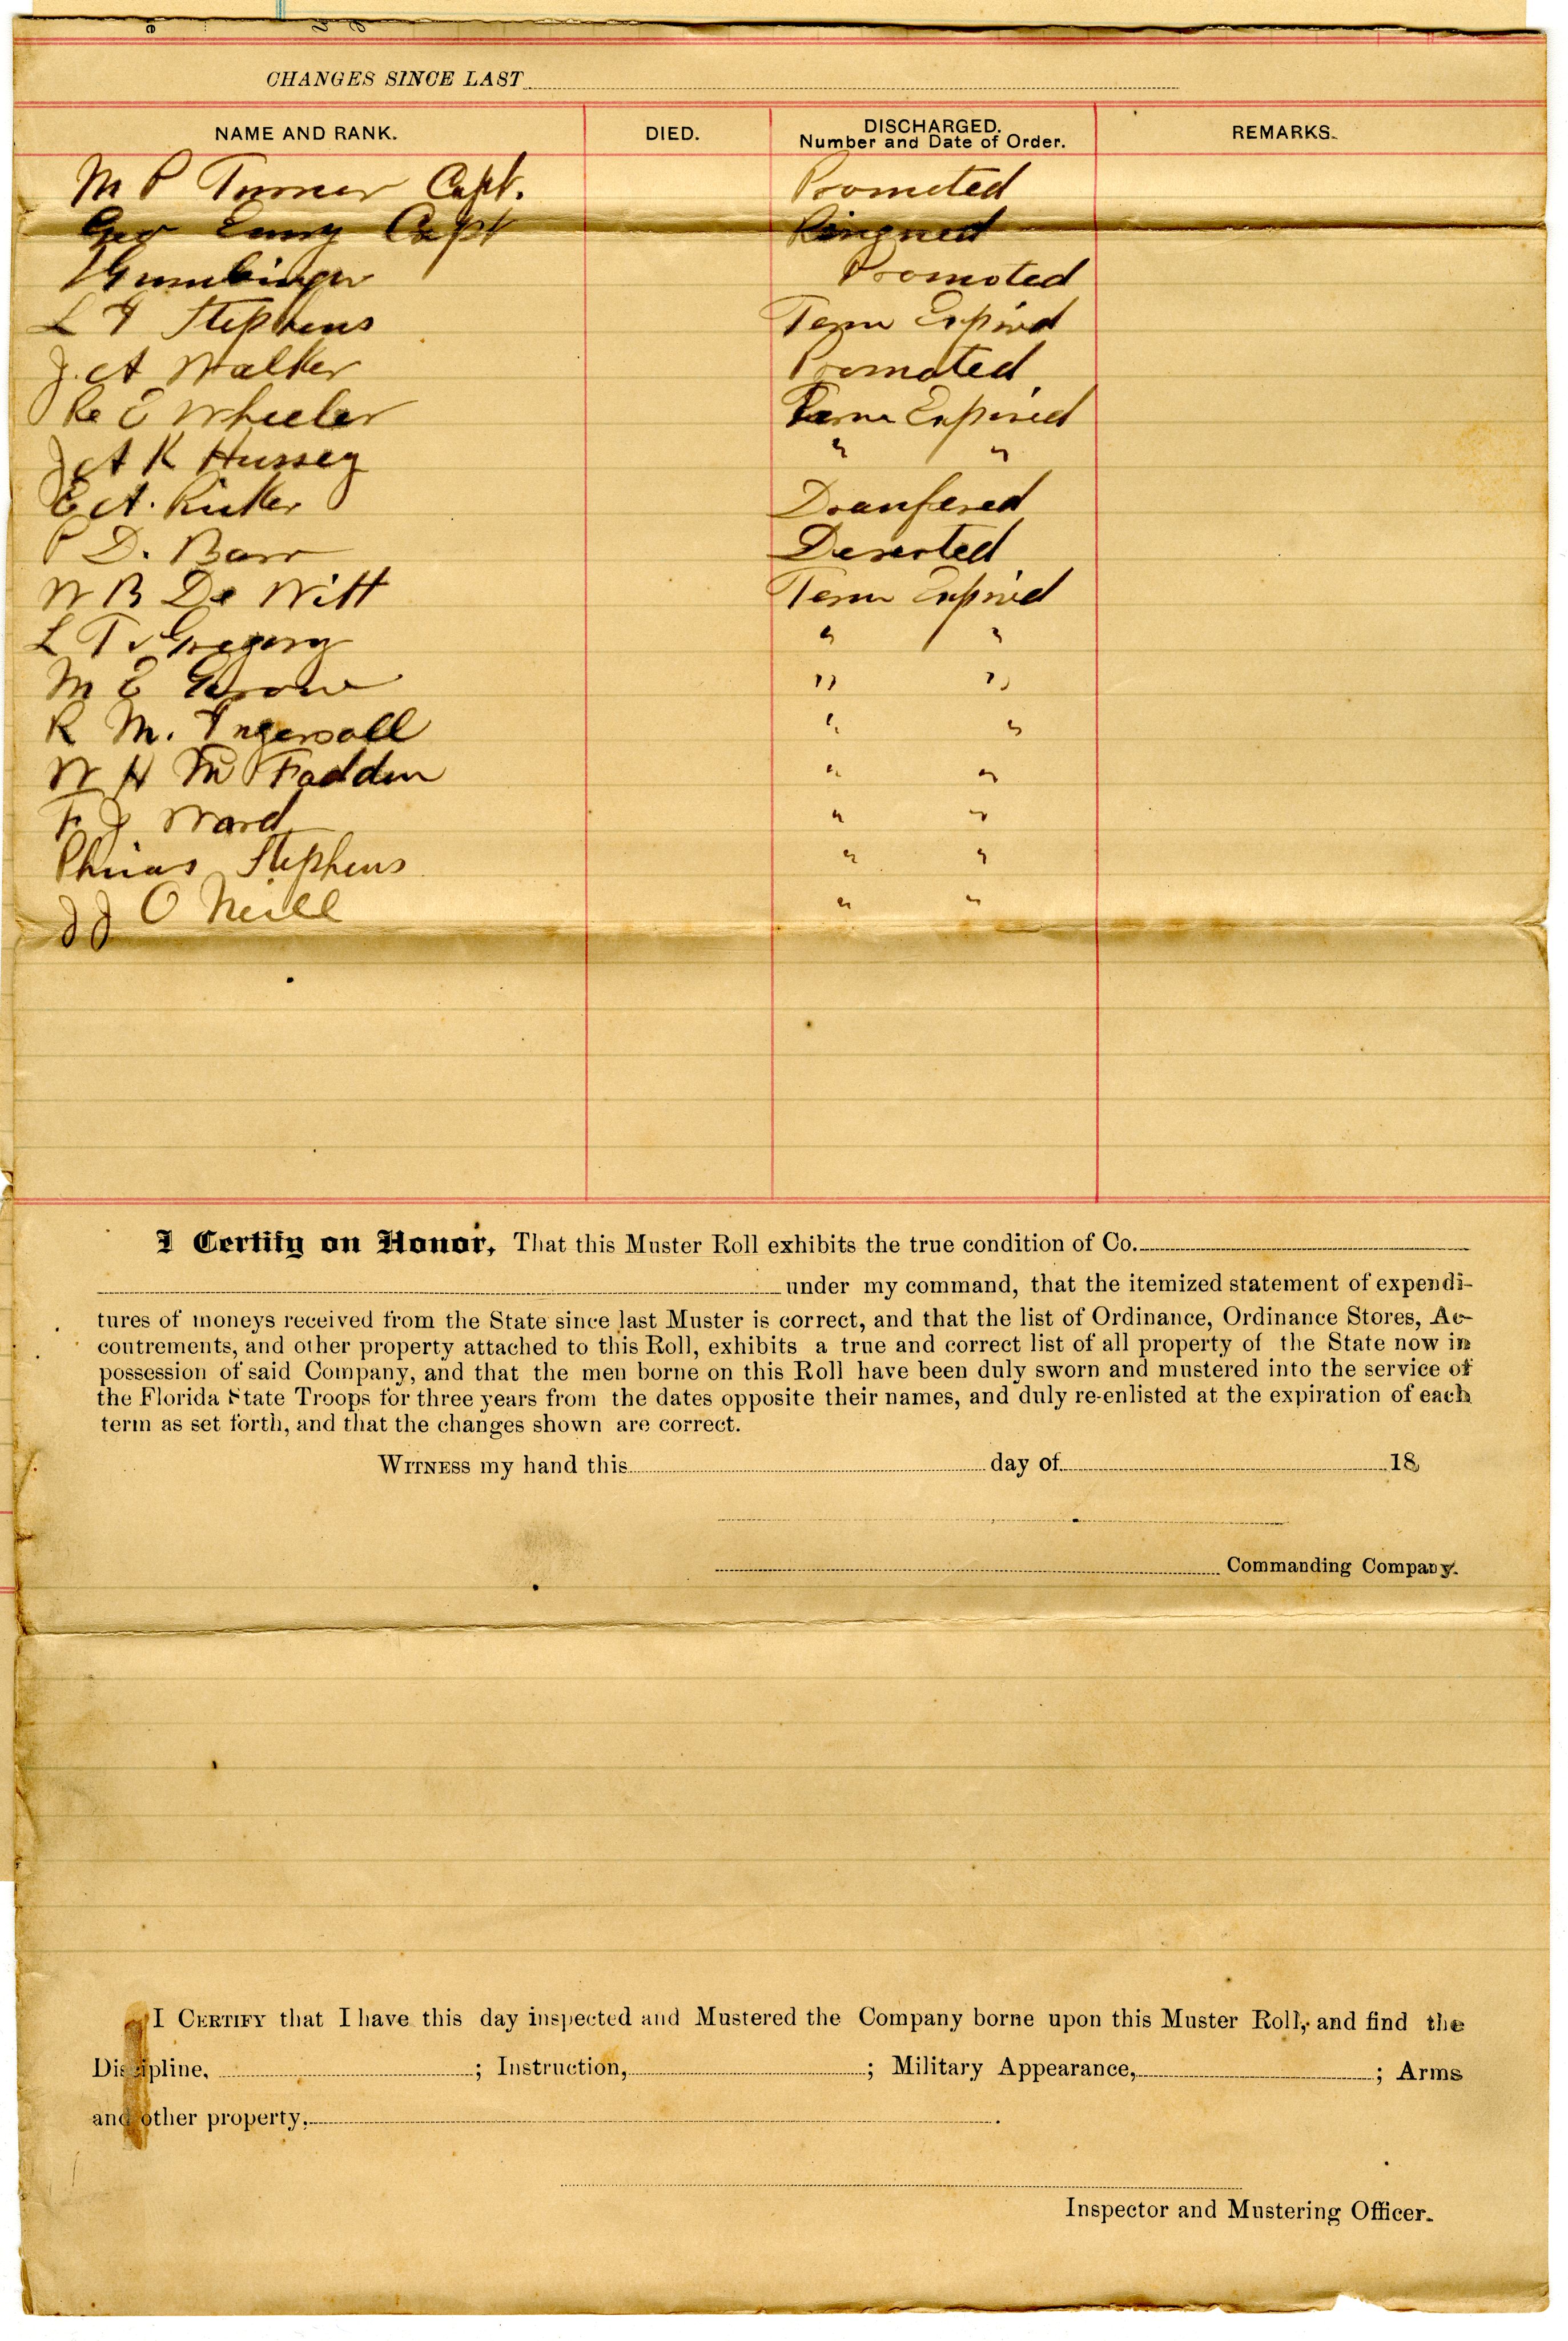 CHANGES SINCE LAST
NAME AND RANK. DIED. DISCHARGED. Number and Date of Order. REMARKS.
M P Turner Capt. Promoted
Geo Capt Resigned
Promoted
L F Stephens Term Expired
J. A Walker Promoted
Ro E Wheeler Term Expired
J A K Hussey " "
E A. Ricker Transfered
P D. Barr Deserted
W B De Witt Term Expired
L T Gregory " "
M E Grow " "
R M. Ingersoll " "
W H Mc Fadden " "
F J Ward " "
Phinas Stephens " "
J J O Neill " "
I Certify on Honor, That this Muster Roll exhibits the true condition of Co.
under my command, that the itemized statement of expendi-
tures of moneys received from the State since last Muster is correct, and that the list of Ordinance, Ordinance Stores, Ac-
coutrements, and other property attached to this Roll, exhibits a true and correct list of all property of the State now in
possession of said Company, and that the men borne on this Roll have been duly sworn and mustered into the service of
the Florida State Troops for three years from the dates opposite their names, and duly re-enlisted at the expiration of each
term as set forth, and that the changes shown are correct.
WITNESS my hand this day of 18
Commanding Company.
I CERTIFY that I have this day inspected and Mustered the Company borne upon this Muster Roll, and find the
Discipline, ; Instruction, ; Military Appearance, ; Arms
and other property, .
Inspector and Mustering Officer.